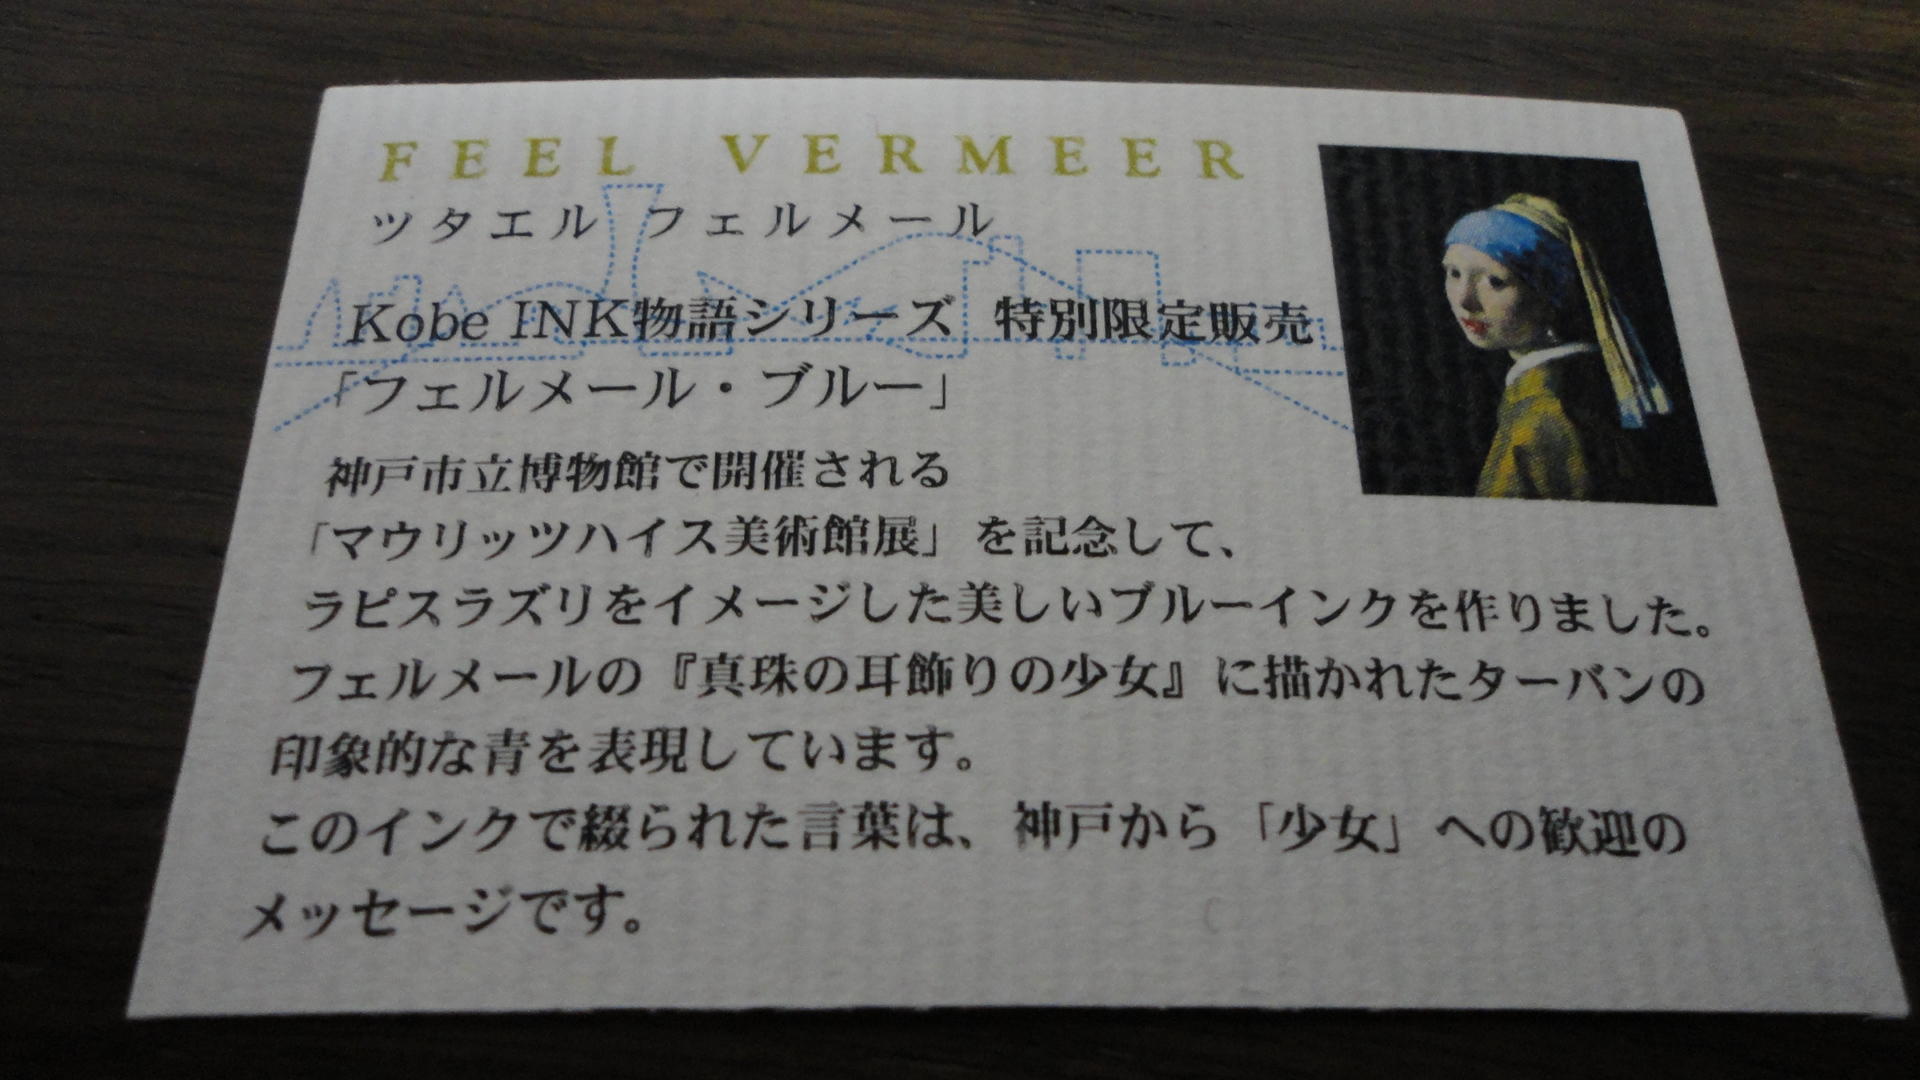 FEEL VERMEER
ツタエル フェルメール
Kobe INK物語シリーズ 特別限定販売
「フェルメール・ブルー」
神戸市立博物館で開催される
「マウリッツハイス美術館展」を記念して、
ラピスラズリをイメージした美しいブルーインクを作りました。
フェルメールの『真珠の耳飾りの少女』に描かれたターバンの
印象的な青を表現しています。
このインクで綴られた言葉は、神戸から「少女」への歓迎の
メッセージです。